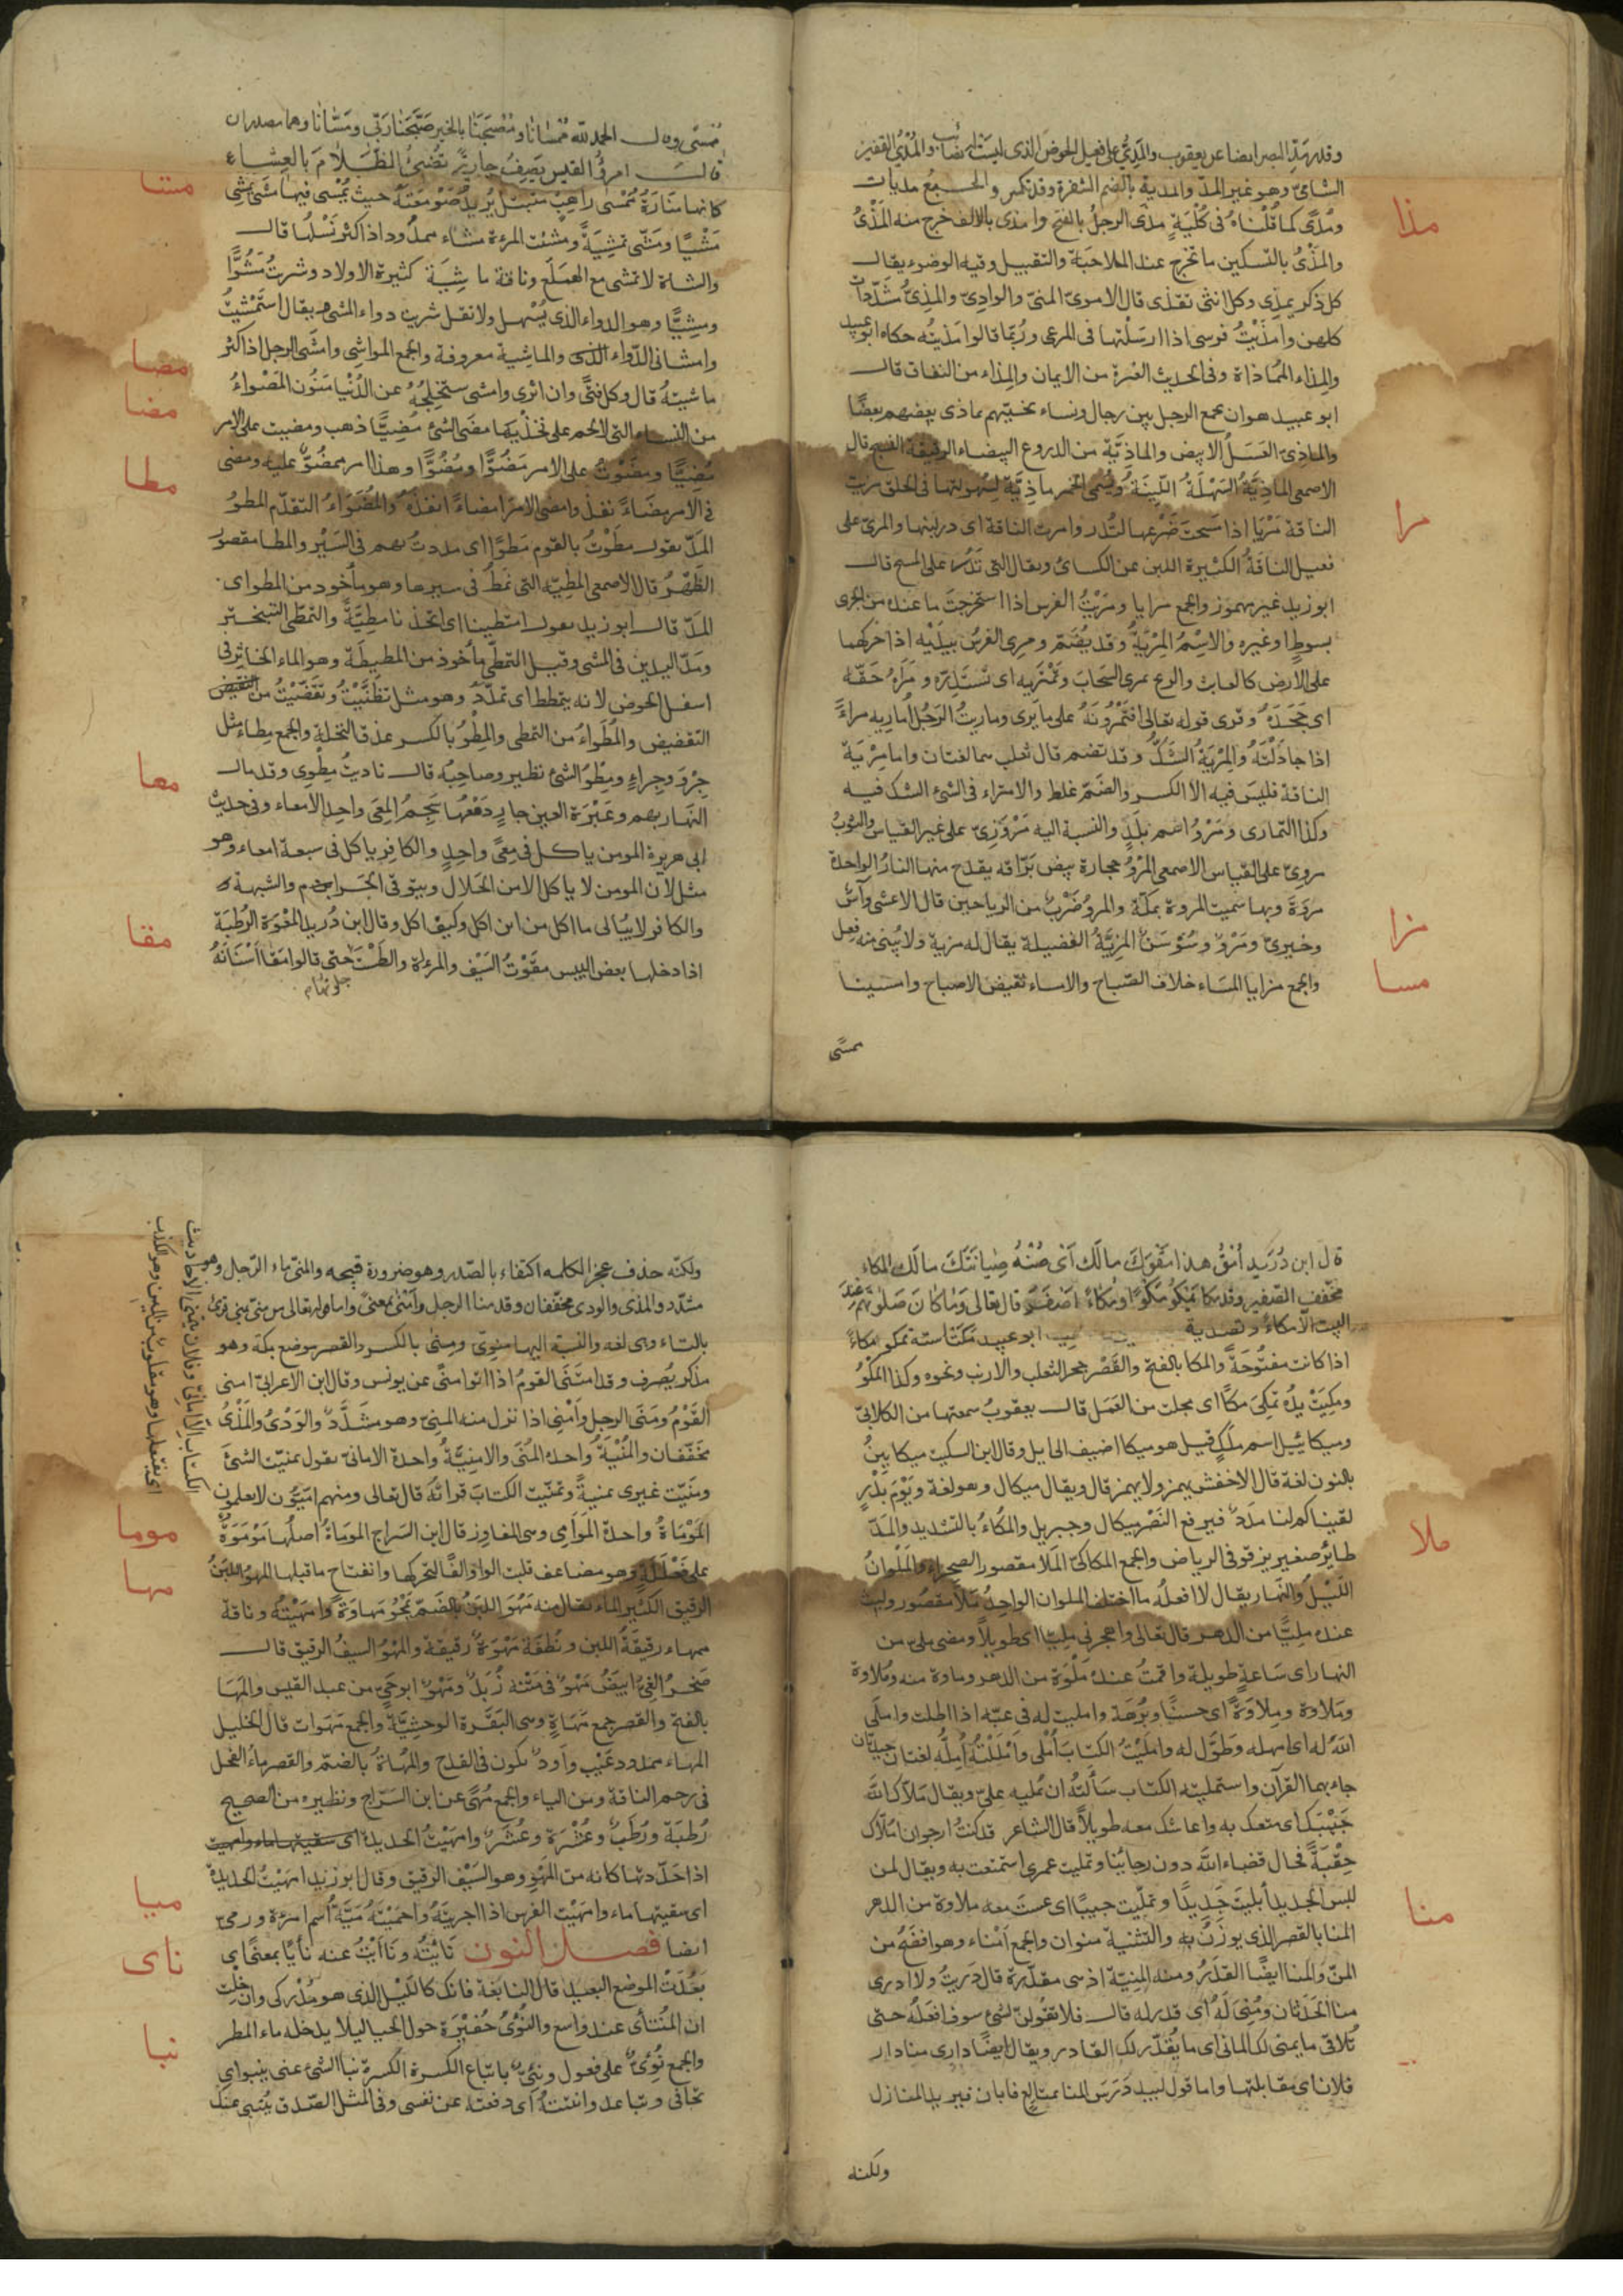 وقد
الشامى وهو غير المد والمدية بالضم الشفرة وقد تكسر والجمع مديات
ومُدًى كما قلناه فى كُلْيَةٍ مذى الرجل بالفتح وامذى بالالف خرج منه المَذْىُ
والمَذْىُ بالتسكين ما يخرج عند الملاعبة والتقبيل وفيه الوضوء يقال
كل ذكر يمذى وكل انثى تقذى قال الاموى المنىّ والوادىّ والمذىّ مشدّدات
كلهن وامذيت فرسى اذا ارسلتها فى المرعى وربما قالوا مذيته حكاه ابو عبيد
والمذاء المماذاة وفى الحديث الغيرة من الايمان والمذاء من النفاق قال
ابو عبيد هو ان يجمع الرجل بين رجال ونساء يخليهم يماذى بعضهم بعضًا
والماذىّ العسل الابيض والماذيّة من الدروع البيضاء قال
الاصمعى الماذيّة السهلة اللينة وتسمى الخمر ماذيّة لسهولتها فى الحلق مريت
الناقة مريا اذا مسحت ضرعها لتدر وامرت الناقة اى در لبنها والمرىّ على
فعيل الناقة الكثيرة اللبن عن الكسائى ويقال التى تدر على المسح قال
ابو زيد غير مهموز والجمع مرايا ومريت الفرس اذا استخرجت ما عنده من الجرى
بسوط او غيره والاسم المرية وقد يضم ومرى الفرس بيديه اذا حركهما
على الارض كالعابث والريح تمرى السحاب وتمتريه اى تستدره ومراه حقه
اى جحده وقرئ قوله تعالى افتمرونه على ما يرى وماريت الرجل اماريه مراءً
اذا جادلته والمرية الشك وقد تضم قال ثعلب هما لغتان واما مرية
الناقة فليس فيه الا الكسر والضم غلط والامتراء فى الشئ الشك فيه
وكذا التمارى ومرو اسم بلد والنسبة اليه مروزىّ على غير القياس والثوب
مروىّ على القياس الاصمعى المرو حجارة بيض براقة يقدح منها النار الواحدة
مروة وبها سميت المروة بمكة والمرو ضرب من الرياحين قال الاعشى وآس
وخيرىّ ومرو وسوسن المزيّة الفضيلة يقال له مزية ولا يبنى منه فعل
والجمع مزايا المساء خلاف الصباح والامساء نقيض الاصباح وامسينا
ممسًى
مذا
مرا
مزا
مسا
ممسًى وقال الحمد لله ممسانا ومصبحنا بالخير صبحنا ربى ومسانا وهما مصدران
قال امرؤ القيس يصف جارية تضئ الظلام بالعشاء
كانها منارة ممسى راهب متبتل يريد صومعته حيث يمسى فيها مشى يمشى
مشيًا ومشّى تمشية ومشت المرءة مشاء ممدود اذا كثر نسلها قال
والشاة لا تمشى مع الهملع وناقة ماشية كثيرة الاولاد وشربت مشوًّا
ومشيًّا وهو الدواء الذى يسهل ولا تقل شربت دواء المشى ويقال استمشيت
وامشانى الدواء والماشية معروفة والجمع المواشى وامشى الرجل اذا كثر
ماشيته قال وكل فتًى وان اثرى وامشى ستخلجه عن الدنيا منون المصواء
من النساء التى لا لحم على فخذيها مضى الشئ مضيًّا ذهب ومضيت على الامر
مضيًّا ومضوت على الامر مضوًّا ومضوًّا وهذا امر ممضوّ عليه ومضى
فى الامر مضاءً نفذ وامضى الامر امضاءً انفذه والمضواء التقدم المطو
المدّ يقول مطوت بالقوم مطوًا اى مددت بهم فى السير والمطا مقصور
الظهر قال الاصمعى المطية التى تمط فى سيرها وهو ماخوذ من المطو اى
المدّ قال ابو زيد يقول امتطينا اى اتخذناها مطيّة والتمطى التبختر
ومدّ اليدين فى المشى وقيل التمطى ماخوذ من المطيطة وهو الماء الخاثر فى
اسفل الحوض لانه يتمطط اى تمدد وهو مثل تظنيت وتقضيت من
التقضيض والمطواء من التمطى والمطو بالكسر عذق النخلة والجمع مطاء مثل
جرو وجراء ومطو الشئ نظيره وصاحبه قال ناديت مطوى وقد مال
النهار بهم وعبرة العين جار دمعها سجم المعى واحد الامعاء وفى حديث
ابى هريرة المومن ياكل فى معًى واحد والكافر ياكل فى سبعة امعاء وهو
مثل لان المومن لا ياكل الا من الحلال ويتوقى الحرام والشبهة
والكافر لا يبالى ما اكل من اين اكل وكيف اكل وقال ابن دريد المغوة الرطبة
اذا دخلها بعض اليبس مقوت السيف والمرءاة والطست حتى قالوا مقا اسنانه
مشا
مصا
مضا
مطا
معا
مقا
قال ابن دريد امق هذا مقوك مالك اى صنه صيانتك مالك المكاء
مخفف الصفير وقد مكا يمكو مكوًا ومكاءً صفر قال تعالى وما كان صلوتهم عند
البيت الا مكاءً وتصدية ابو عبيد مكت استه تمكو مكاءً
اذا كانت مفتوحة والمكا بالفتح والقصر جحر الثعلب والارنب ونحوه وكذا المكو
ومكيت يده تمكى مكًا اى مجلت من العمل قال يعقوب سمعتها من الكلابىّ
وميكائيل اسم ملك قيل هو ميكا اضيف الى ايل وقال ابن السكيت ميكايين
بالنون لغة قال الاخفش يهمز ولا يهمز قال ويقال ميكال وهو لغة ويوم بدر
لقيناكم لنا مدد فيرفع النصر ميكال وجبريل والمكّاء بالتشديد والمدّ
طائر صغير يزقو فى الرياض والجمع المكاكىّ الملا مقصور الصحراء والملوان
الليل والنهار يقال لا افعله ما اختلف الملوان الواحد ملا مقصور ولبث
عنده مليًّا من الدهر قال تعالى واهجرنى مليًّا اى طويلًا ومضى ملىّ من
النهار اى ساعة طويلة واقمت عنده ملوة من الدهر وملاوة منه وملاوة
وملاوة وملاوة اى حسنًا وبرهة وامليت له فى غيه اذا اطلت واملى
الله له اى امهله وطوّل له وامليت الكتاب املى وامللته امله لغتان جيدتان
جاء بهما القرآن واستمليته الكتاب سألته ان يمليه علىّ ويقال ملاك الله
حبيبك اى متعك به واعاشك معه طويلًا قال الشاعر قد كنت ارجو ان املاك
حقبة فحال قضاء الله دون رجائنا وتمليت عمرى استمتعت به ويقال لمن
لبس الجديد ابليت جديدًا وتمليت حبيبًا اى عشت معه ملاوة من الدهر
المنا بالقصر الذى يوزن به والتثنية منوان والجمع امناء وهو افصح من
المنّ والمنا ايضًا القدر ومنه المنية اذ هى مقدّرة قال دريت ولا ادرى
منا الحدثان ومُنى له اى قدر له قال فلا تقولن لشئ سوف افعله حتى
تلاقى ما يمنى لك المانى اى ما يقدر لك القادر ويقال ايضًا دارى منا دار
فلان اى مقابلتها واما قول لبيد درس المنا بمتالع فابان فيريد المنازل
ولكنه
ملا
منا
ولكنه حذف عجز الكلمه اكتفاء بالصدر وهو ضرورة قبيحه والمنىّ ماء الرجل وهو
مشدد والمذى والودى مخففان وقد منا الرجل وامنى بمعنًى
بالتاء وهى لغه والنسبة اليها منوىّ ومنى بالكسر والقصر موضع بمكة وهو
مذكر يصرف وقد امتنى القوم اذا اتوا منى عن يونس وقال ابن الاعرابى امنى
القوم ومنى الرجل وامنى اذا نزل منه المنىّ وهو مشدّد والودى والمذى
مخففان والمنية واحدة المنى والامنيّة واحدة الامانى يقول تمنيت الشئ
ومنيت غيرى تمنية وتمنيت الكتاب قرأته قال تعالى ومنهم اميون لا يعلمون
الموماة واحدة الموامى وهى المفاوز قال ابن السراج الموماة اصلها موموة
على فعللة وهو مضاعف قلبت الواو الفًا لتحركها وانفتاح ما قبلها المهو اللبن
الرقيق الكثير الماء يقال منه مهو اللبن بالضم يمهو مهاوة وامهيته وناقة
ممهاء رقيقة اللبن ونطفة مهوة رقيقة والمهو السيف الرقيق قال
صخر الغىّ ابيض مهو فى متنه ربد ومهو ابو حىّ من عبد القيس والمها
بالفتح والقصر جمع مهاة وهى البقرة الوحشية والجمع مهوات قال الخليل
المهاء ممدود عيب واود يكون فى القدح والمهاة بالضم والقصر ماء الفحل
فى رحم الناقة وهو من الياء والجمع مهًى عن ابن السراج ونظيره من الصحيح
رطبة ورطب وعشرة وعشر وامهيت الحديدة اى سقيتها ماء وامهيت
اذا حددتها كانه من المهو وهو السيف الرقيق وقال ابو زيد امهيت الحديدة
اى سقيتها ماء وامهيت الفرس اذا اجريته واحميته مية اسم امرءة ومىّ
ايضا فصل النون نايته ونأيت عنه نأيًا بمعنى اى
بعدت الموضع البعيد قال النابغة فانك كالليل الذى هو مدركى وان خلت
ان المنتأى عنك واسع والنؤى حفيرة حول الخباء لئلا يدخله ماء المطر
والجمع نؤىّ على فعول ونئىّ باتباع الكسرة الكسرة نبا الشئ عنى ينبو اى
تجافى وتباعد وانبيته اى دفعته عن نفسى وفى المثل الصدق ينبى عنك
موما
مها
ميا
ناى
نبا